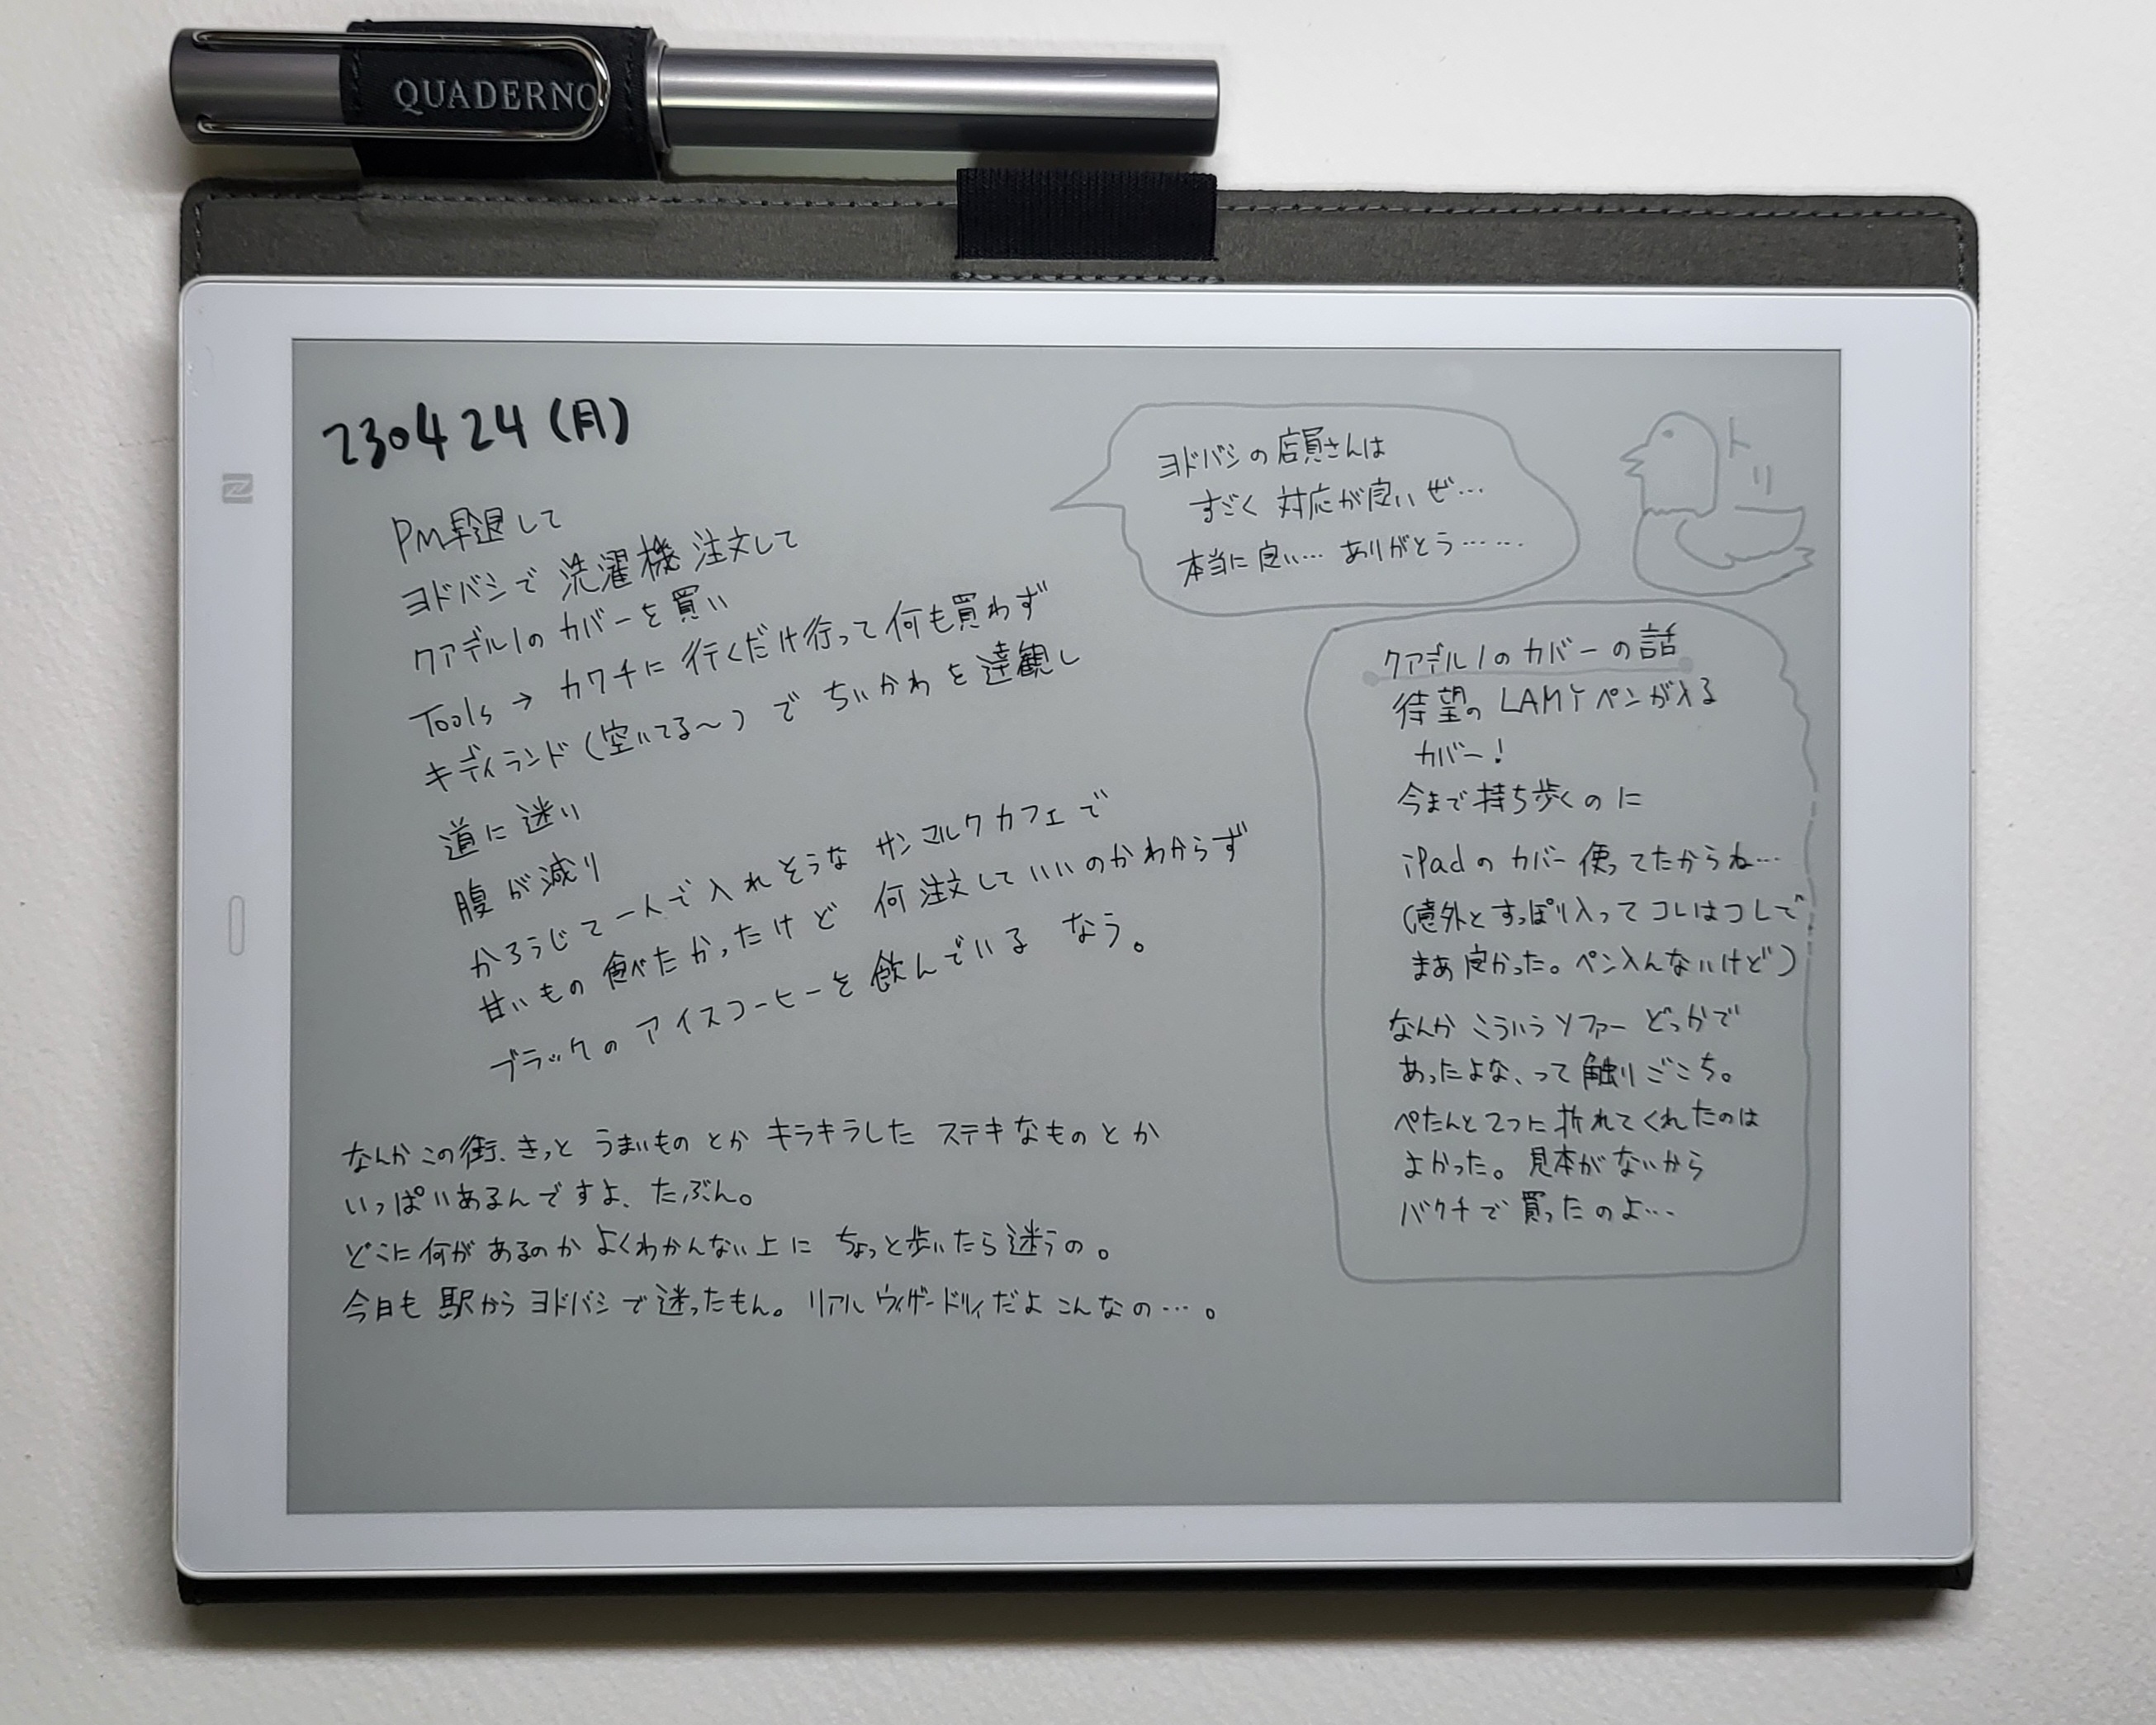 QUADERNO
230424(月)
PM早退して
ヨドバシで洗濯機注文して
クアデルノのカバーを買い
Tools→カワチに行くだけ行って何も買わず
キディランド(空いてる〜)でちいかわを達観し
道に迷い
腹が減り
かろうじて一人で入れそうなサンマルクカフェで
甘いもの食べたかったけど何注文していいのかわからず
ブラックのアイスコーヒーを飲んでいるなう。
なんかこの街、きっとうまいものとかキラキラしたステキなものとか
いっぱいあるんですよ、たぶん。
どこに何があるのかよくわかんない上にちょっと歩いたら迷うの。
今日も駅からヨドバシで迷ったもん。リアルウィザードリィだよこんなの…。
ヨドバシの店員さんは
すごく対応が良いぜ…
本当に良い…ありがとう……
トリ
クアデルノのカバーの話
待望のLAMYペンが入る
カバー!
今まで持ち歩くのに
iPadのカバー使ってたからね…
(意外とすっぽり入ってコレはコレで
まあ良かった。ペン入んないけど)
なんかこういうソファーどっかで
あったよな、って触りごこち。
ぺたんと2つに折れてくれたのは
よかった。見本がないから
バクチで買ったのよ…